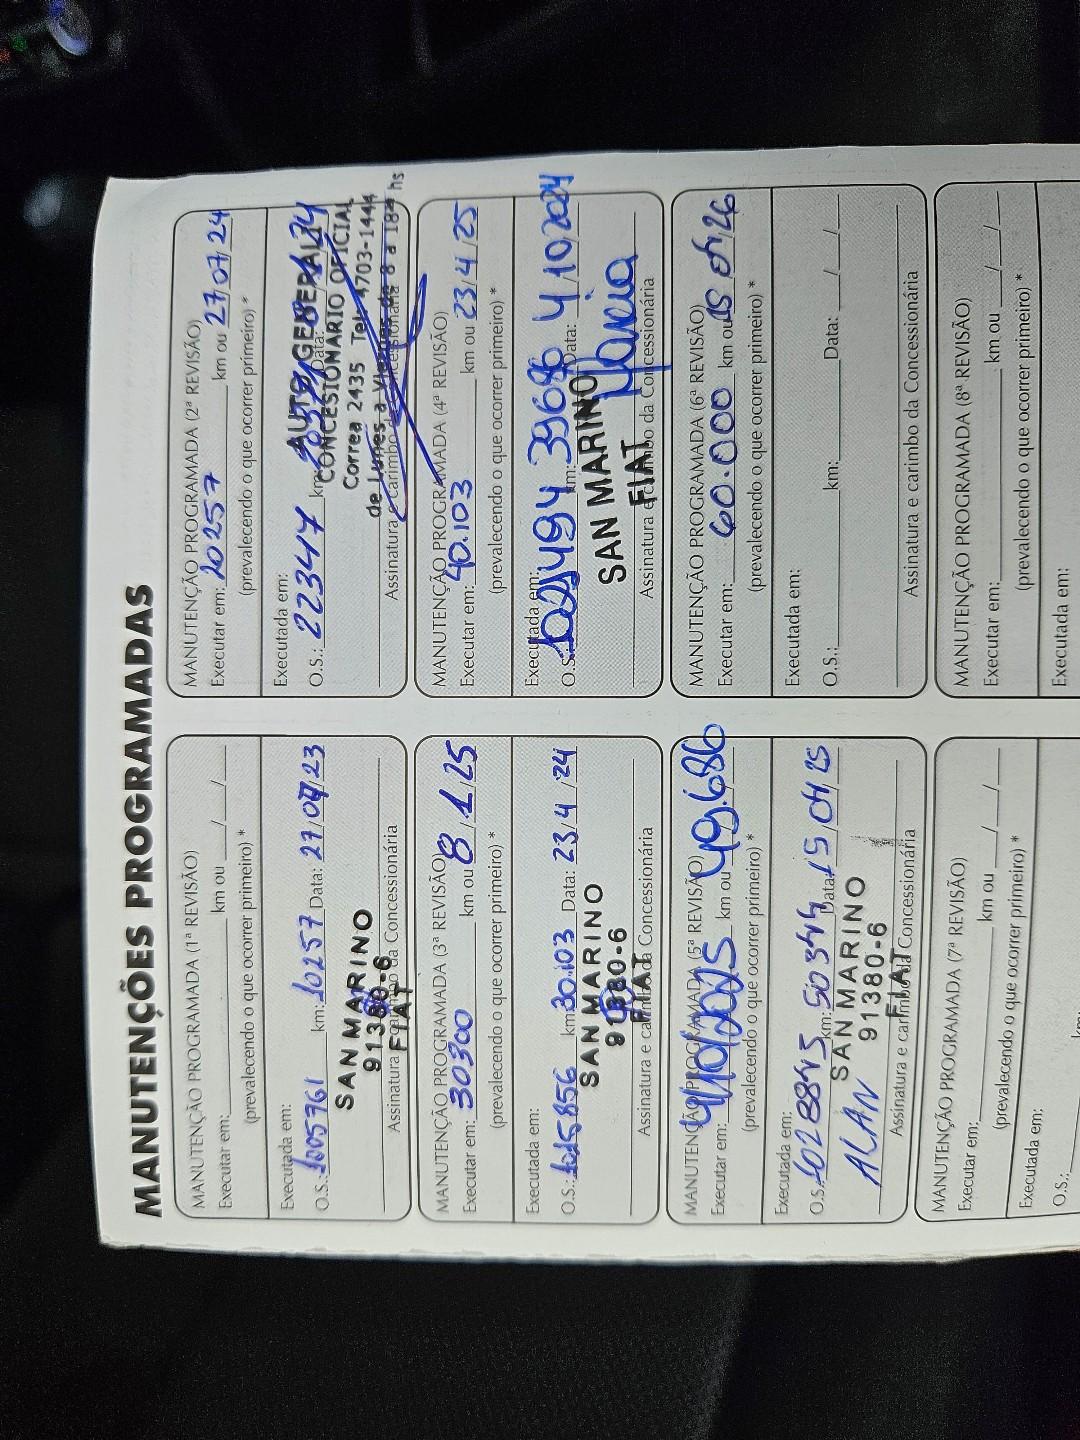 MANUTENÇÕES PROGRAMADAS
MANUTENÇÃO PROGRAMADA (1ª REVISÃO)
Executar em: km ou / /
(prevalecendo o que ocorrer primeiro) *
Executada em:
O.S.: 1005761 km: 10257 Data: 27/07/23
SAN MARINO
91380-6
FIAT
Assinatura e carimbo da Concessionária
MANUTENÇÃO PROGRAMADA (2ª REVISÃO)
Executar em: 20257 km ou 27/07/24
(prevalecendo o que ocorrer primeiro) *
Executada em:
O.S.: 22347 km: Data:
AUTO GENERALI
CONCESIONARIO OFICIAL
Correa 2435 Tel: 4703-1444
de Lunes a Viernes de 8 a 18 hs
Assinatura e carimbo da Concessionária
MANUTENÇÃO PROGRAMADA (3ª REVISÃO)
Executar em: 30300 km ou 8/1/25
(prevalecendo o que ocorrer primeiro) *
Executada em:
O.S.: 1015856 km: 30.103 Data: 23/4/24
SAN MARINO
91380-6
FIAT
Assinatura e carimbo da Concessionária
MANUTENÇÃO PROGRAMADA (4ª REVISÃO)
Executar em: 40.103 km ou 23/4/25
(prevalecendo o que ocorrer primeiro) *
Executada em:
O.S.: km: 39686 Data: 4/10/2024
SAN MARINO
FIAT
Assinatura e carimbo da Concessionária
MANUTENÇÃO PROGRAMADA (5ª REVISÃO)
Executar em: 4/10/2025 km ou 49.686
(prevalecendo o que ocorrer primeiro) *
Executada em:
O.S.: 1028895 km: 50344 Data: 15/04/25
ALAN
SAN MARINO
91380-6
FIAT
Assinatura e carimbo da Concessionária
MANUTENÇÃO PROGRAMADA (6ª REVISÃO)
Executar em: 60.000 km ou 15 04/26
(prevalecendo o que ocorrer primeiro) *
Executada em:
O.S.: km: Data: / /
Assinatura e carimbo da Concessionária
MANUTENÇÃO PROGRAMADA (7ª REVISÃO)
Executar em: km ou / /
(prevalecendo o que ocorrer primeiro) *
Executada em:
O.S.: km:
MANUTENÇÃO PROGRAMADA (8ª REVISÃO)
Executar em: km ou / /
(prevalecendo o que ocorrer primeiro) *
Executada em: